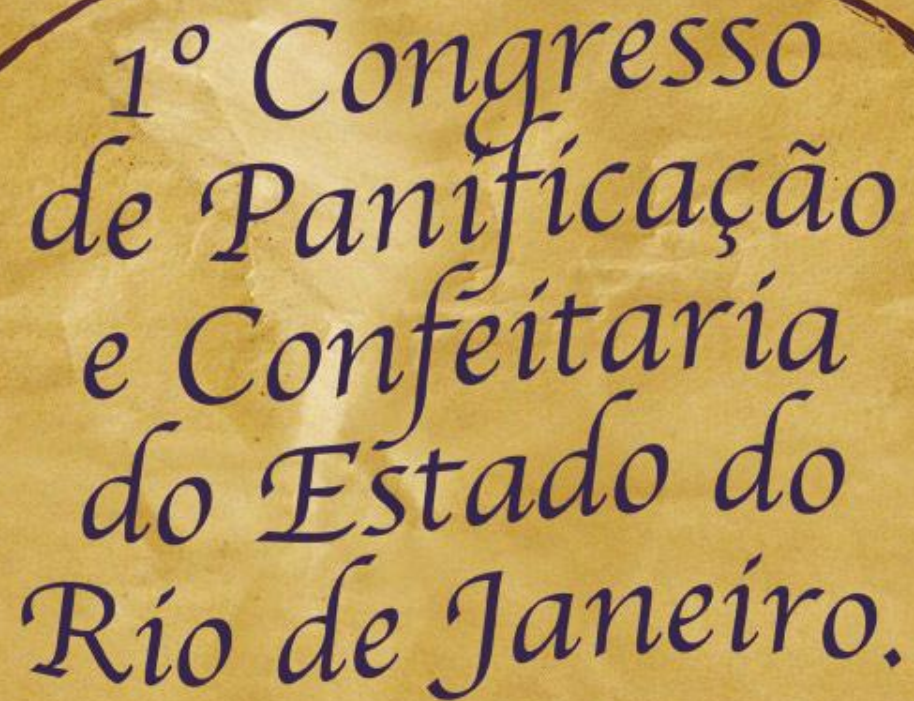 1º Congresso
de Panificação
e Confeitaria
do Estado do
Rio de Janeiro.